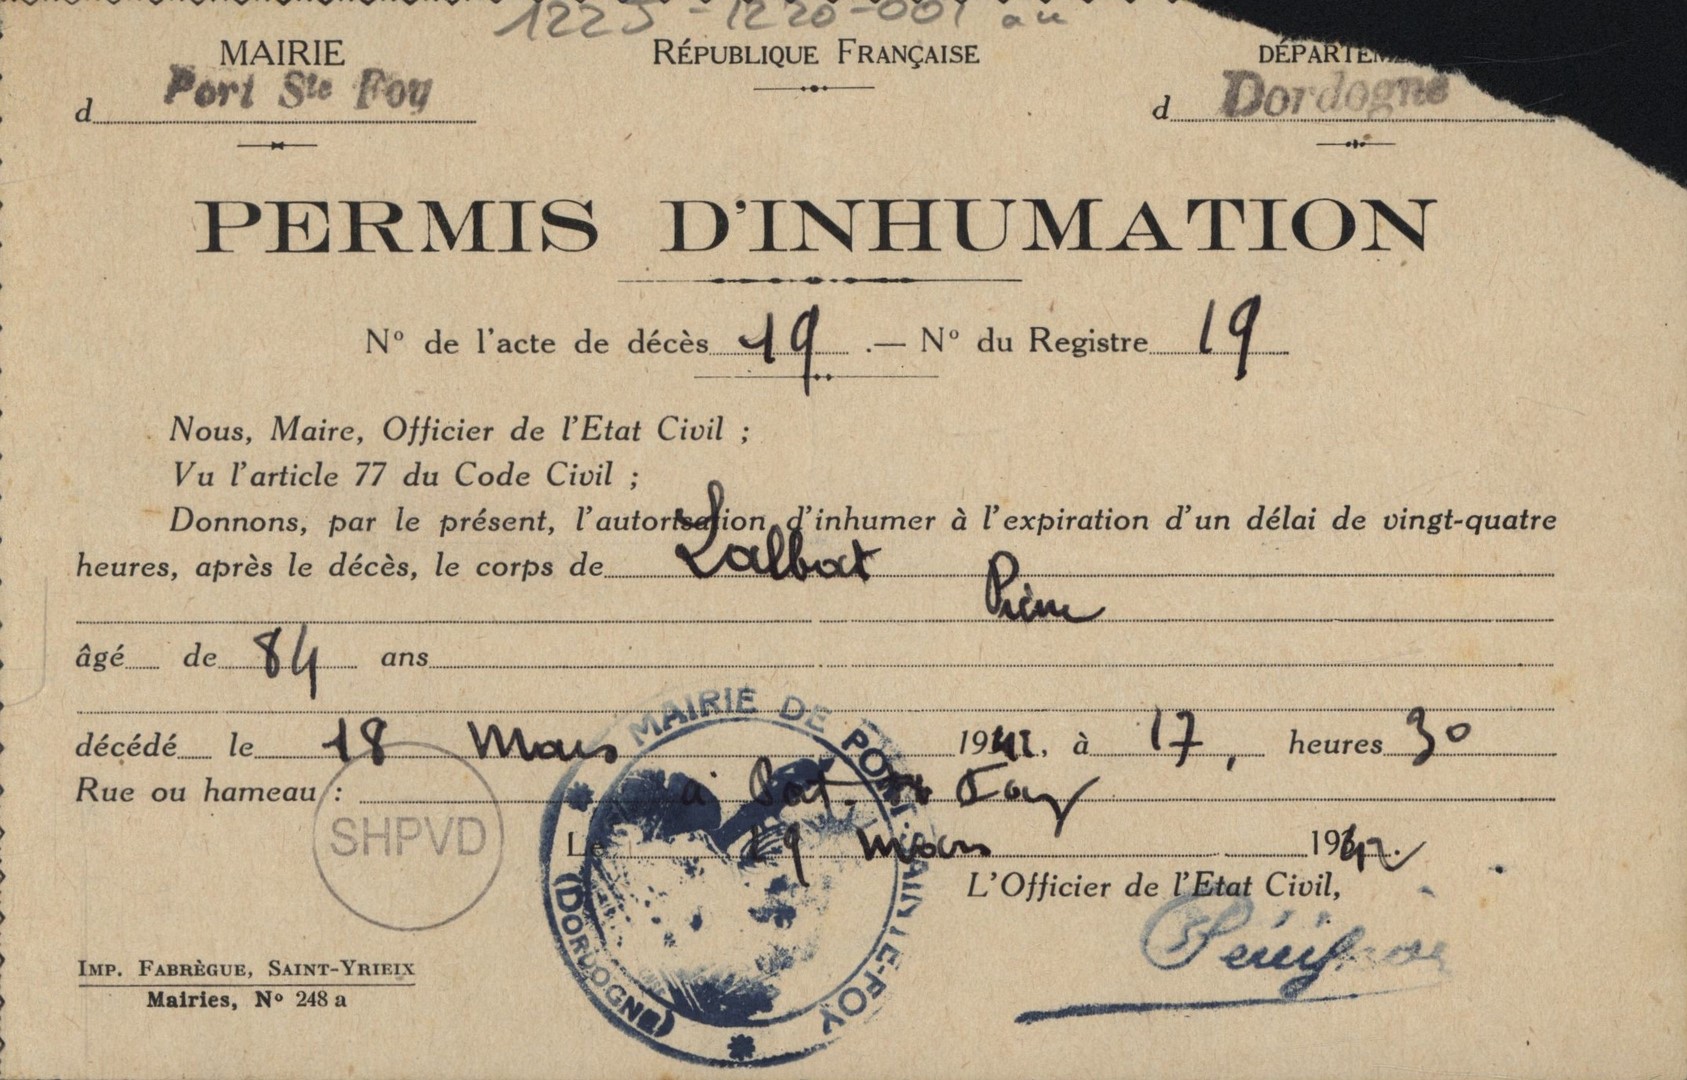 1225-1220-001 au
MAIRIE
d Port Ste Foy
RÉPUBLIQUE FRANÇAISE
DÉPARTEM
d Dordogne
PERMIS D'INHUMATION
Nº de l'acte de décès 19 .— Nº du Registre 19
Nous, Maire, Officier de l'Etat Civil ;
Vu l'article 77 du Code Civil ;
Donnons, par le présent, l'autorisation d'inhumer à l'expiration d'un délai de vingt-quatre
heures, après le décès, le corps de Lalbat
Pierre
âgé de 84 ans
décédé le 18 Mars 1942, à 17, heures 30
Rue ou hameau : à Port-Ste Foy
Le 19 Mars 1942.
L'Officier de l'Etat Civil,
MAIRIE DE PORT-SAINTE-FOY
(DORDOGNE)
SHPVD
IMP. FABRÈGUE, SAINT-YRIEIX
Mairies, Nº 248 a